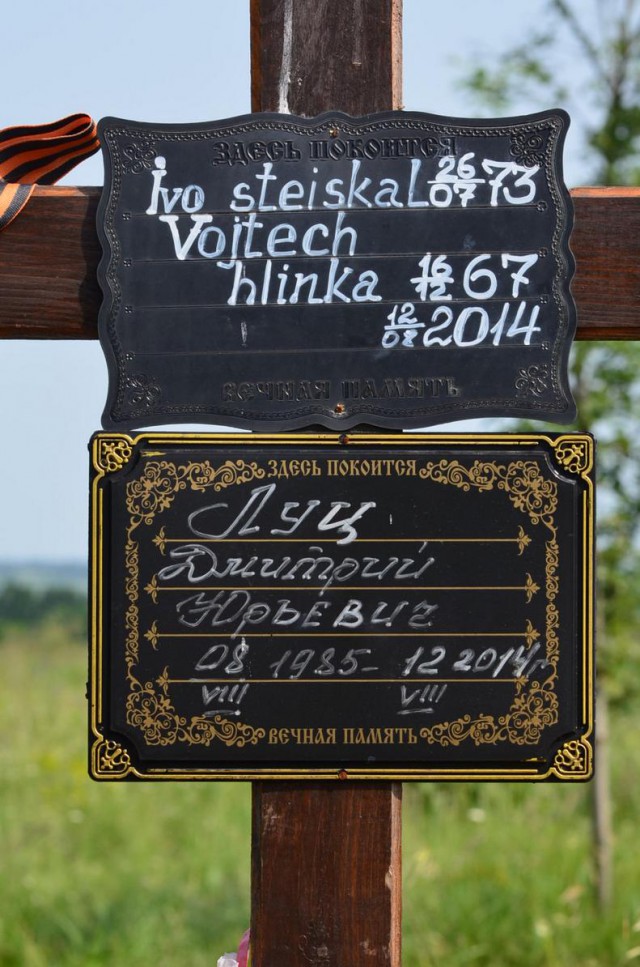 ЗДЕСЬ ПОКОИТСЯ
Ivo steiskal 26/07 73
Vojtech
hlinka 16/12 67
12/08 2014
ВЕЧНАЯ ПАМЯТЬ
ЗДЕСЬ ПОКОИТСЯ
Луц
Дмитрий
Юрьевич
08 1985- 12 2014г
VIII VIII
ВЕЧНАЯ ПАМЯТЬ